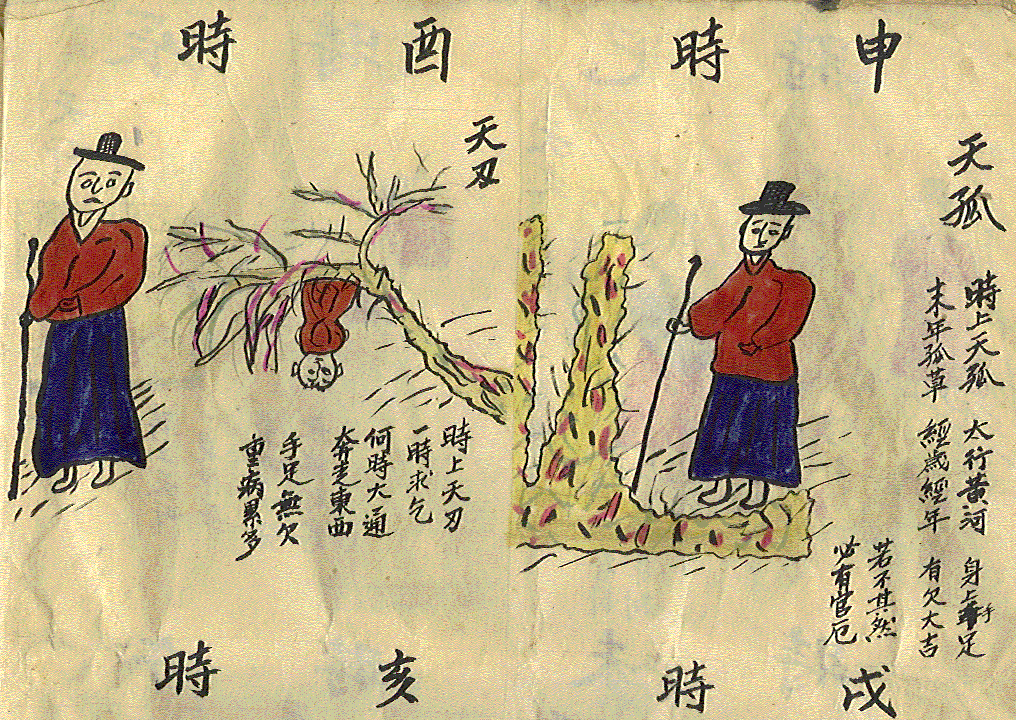 申時
天孤
時上天孤 太行黃河 身上手足
末年孤草 經歲經年 有欠大吉
若不其然
必有官厄
戌時
酉時
天刃
時上天刃
一時求乞
何時大通
奔走東西
手足無欠
重病累多
亥時